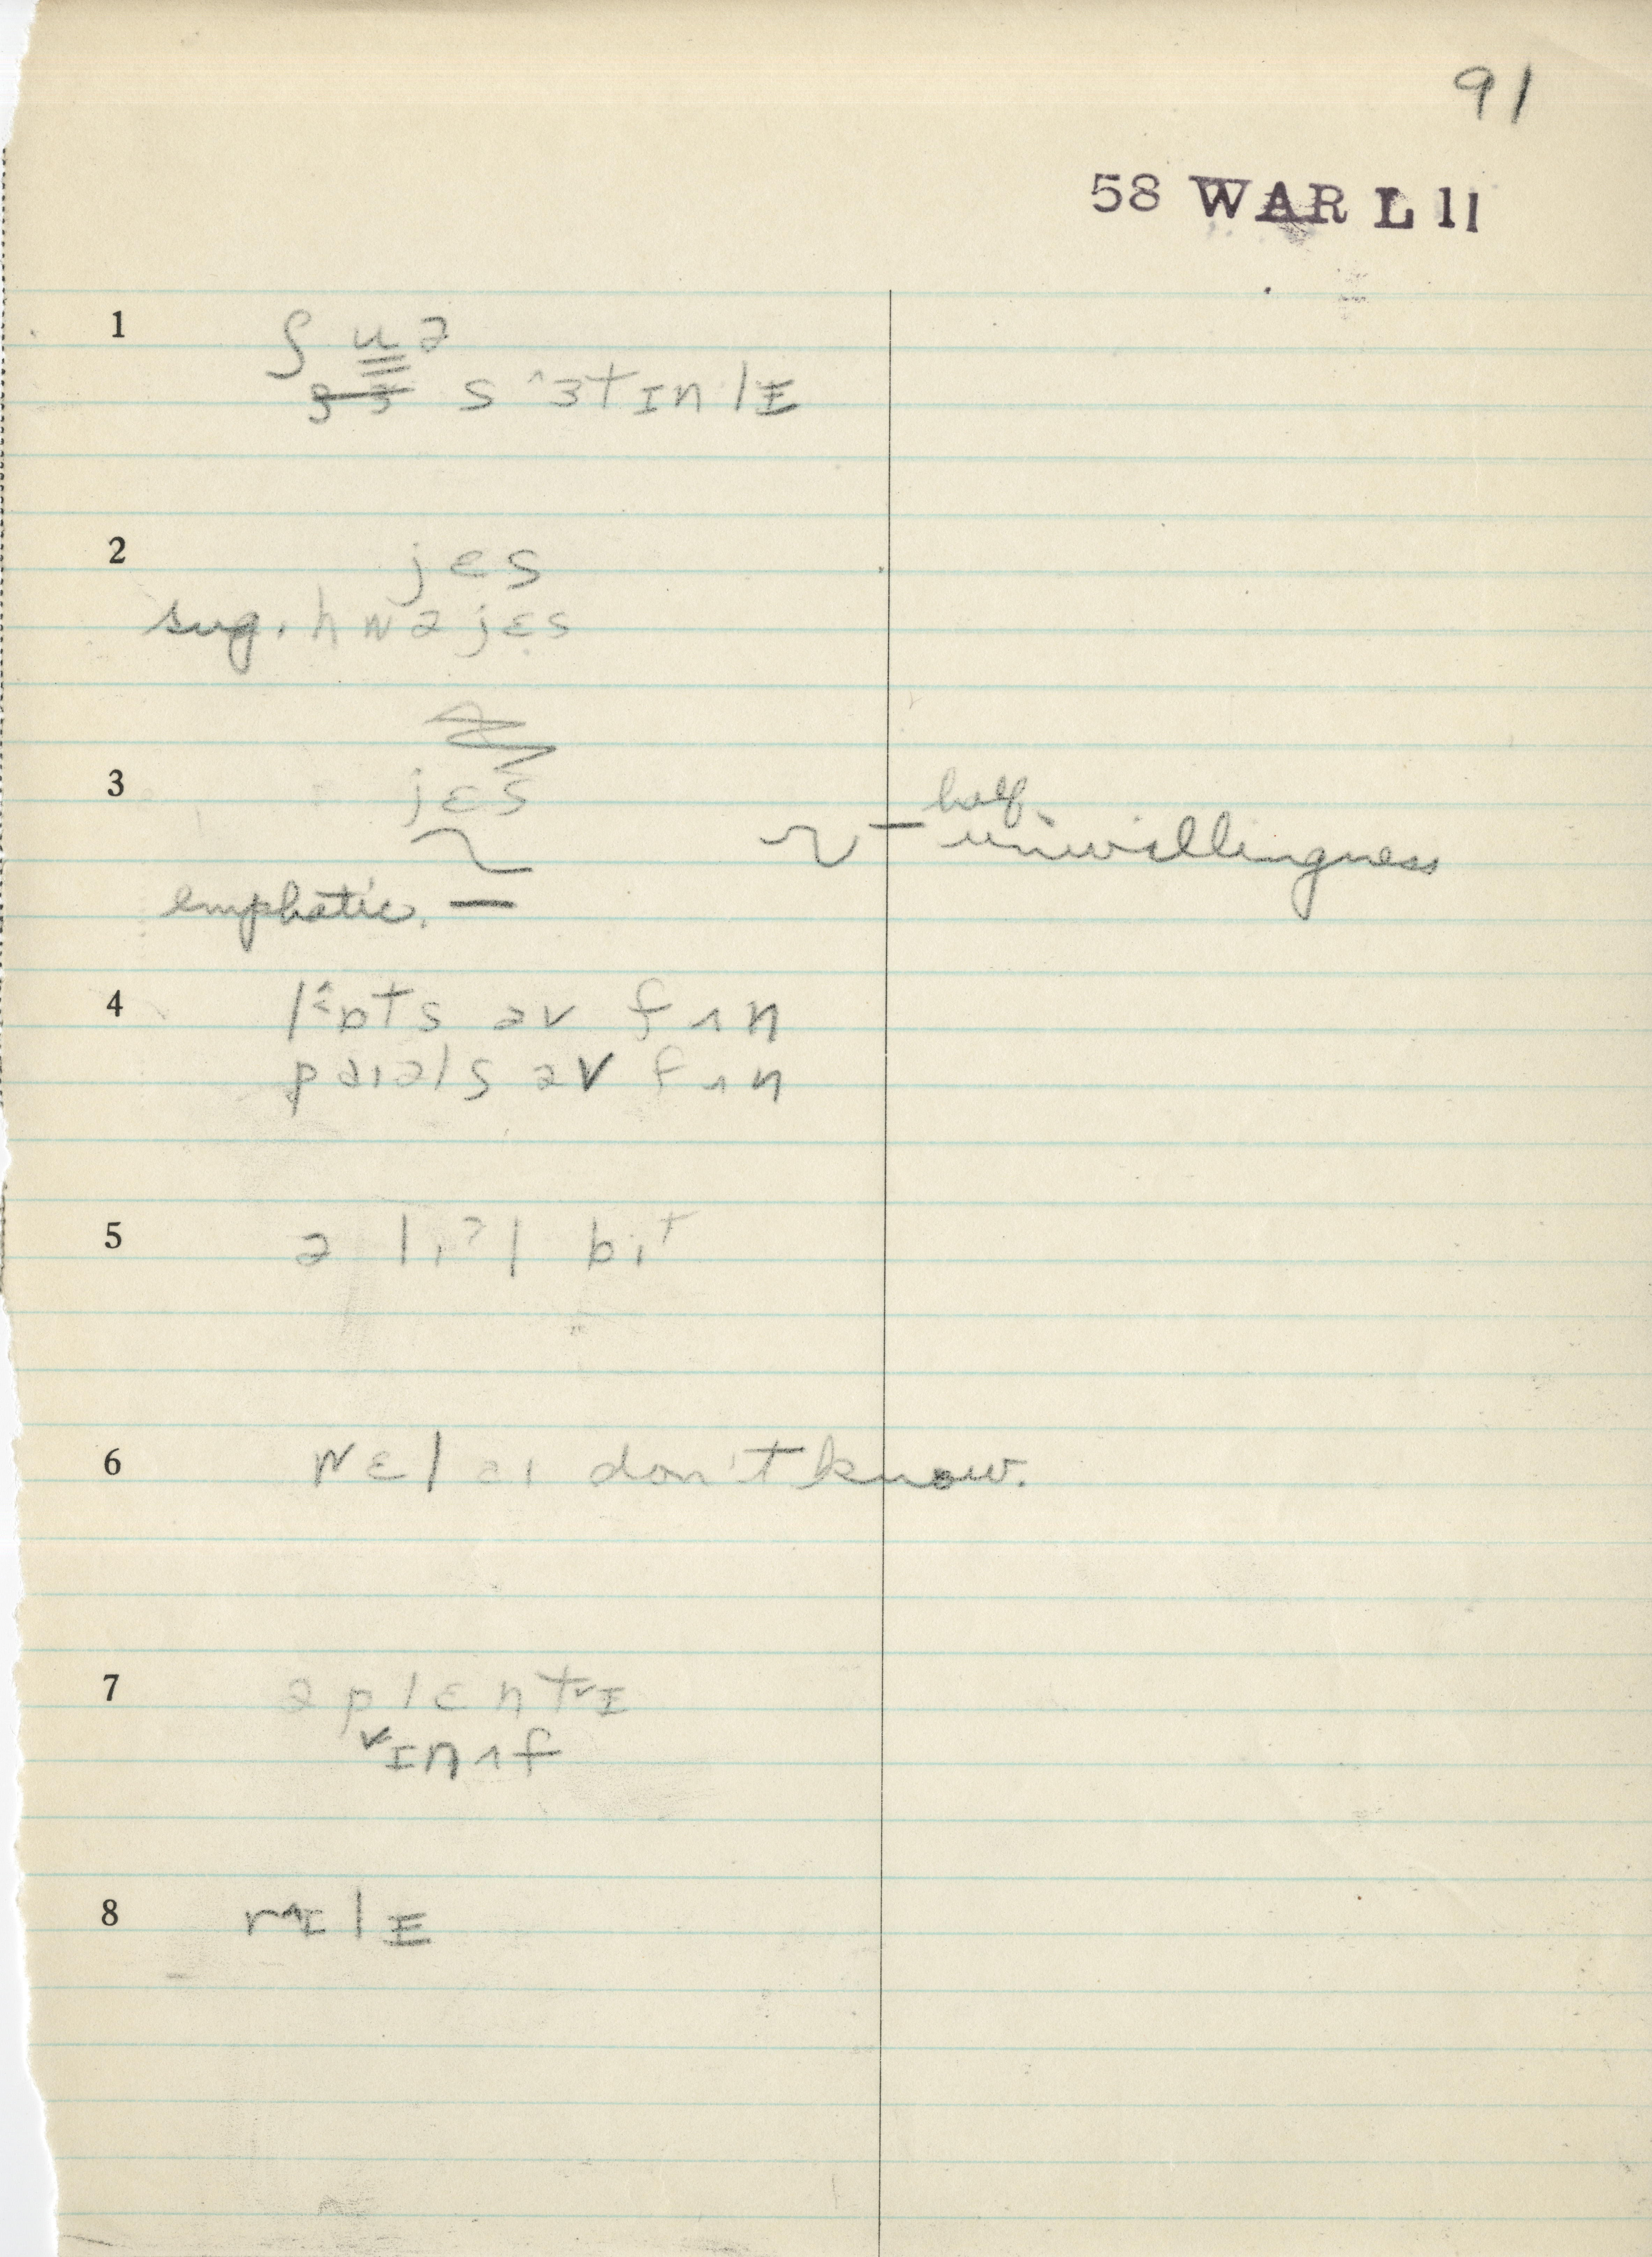 91
58 WAR L 11
1 ʃ u ə
s ˄ɜt ɪn lɪ
2 jɛs
sug. hwə jɛs
3 jɛs
half
unwillingness
emphatic. —
4 əv fʌn
əv fʌn
5 ə lɪʔl bɪt
6 wɛl aɪ don't know.
7 ə plɛnt˅ɪ
˅ɪnʌf
8 r˄ɪlɪ